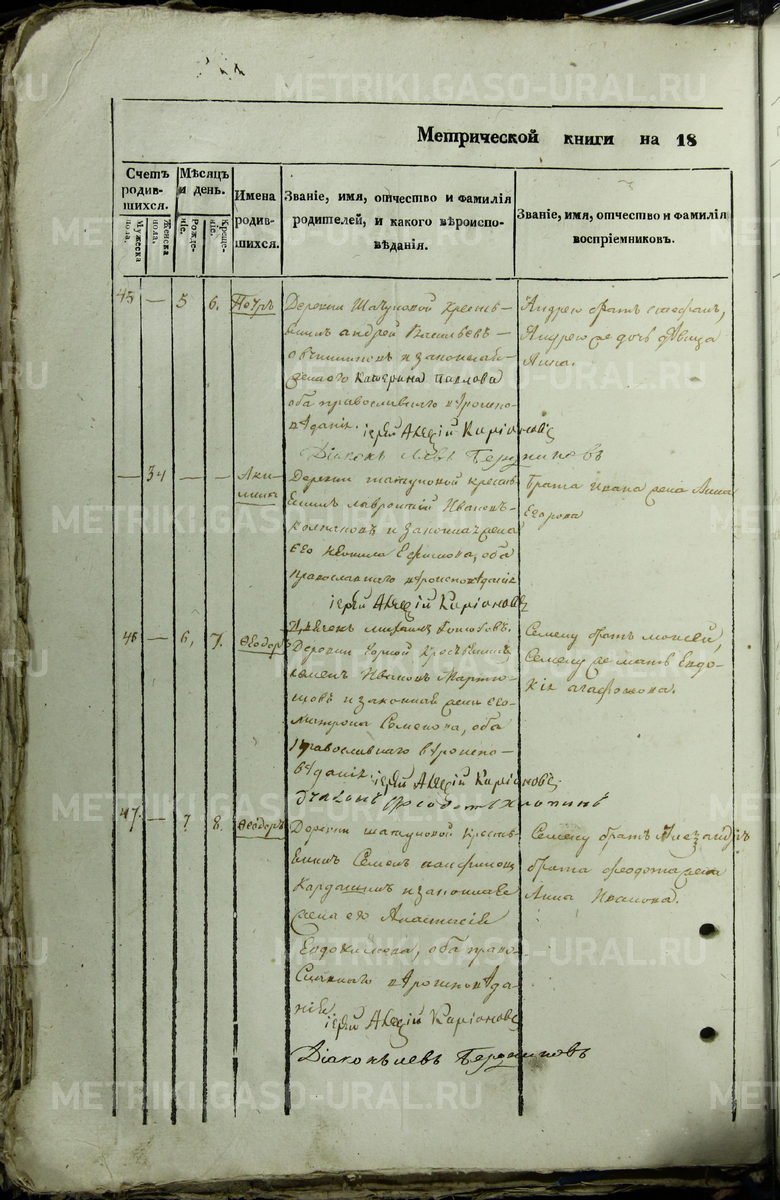 Метрической книги на 18
Счетъ родившихся.
Мужеска пола.
Женска пола.
Мѣсяцъ и день.
Рожденіе.
Крещеніе.
Имена родившихся.
Званіе, имя, отчество и фамилія родителей, и какого вѣроисповѣданія.
Званіе, имя, отчество и фамилія воспріемниковъ.
45 — 5 6. Петръ
Деревни Шатуновой кресть-
янинъ Андрей Васильевъ
и законная
Катерина Павлова
оба православнаго вѣроиспо-
вѣданія. іерей Алексій Каріоновъ
Діаконъ Левъ
Андрею братъ Стефанъ,
Андрею же дочь дѣвица
Анна.
— 34 — — Аки-
лина
Деревни Шатуновой кресть-
янинъ Лаврентій Ивановъ
и законная жена
его Неонила Ефимова, оба
православнаго вѣроисповѣданія
іерей Алексій Каріоновъ
брата Ивана жена Анна
Егорова
46 — 6, 7. Ѳеодоръ
Деревни крестьянинъ
Семенъ Ивановъ
и законная жена его
Матрона Семенова, оба
православнаго вѣроиспо-
вѣданія. іерей Алексій Каріоновъ
Діаконъ
Семену братъ Моисей,
Семену же мать Евдо-
кія Агафонова.
47. — 7 8. Ѳеодоръ
Деревни Шатуновой кресть-
янинъ Семенъ
Кардашинъ и законная
жена его Анастасія
Евдокимова, оба право-
славнаго вѣроисповѣда-
нія. іерей Алексій Каріоновъ
Діаконъ Левъ
Семену братъ Александръ
брата Феодота жена
Анна Иванова.
METRIKI.GASO-URAL.RU